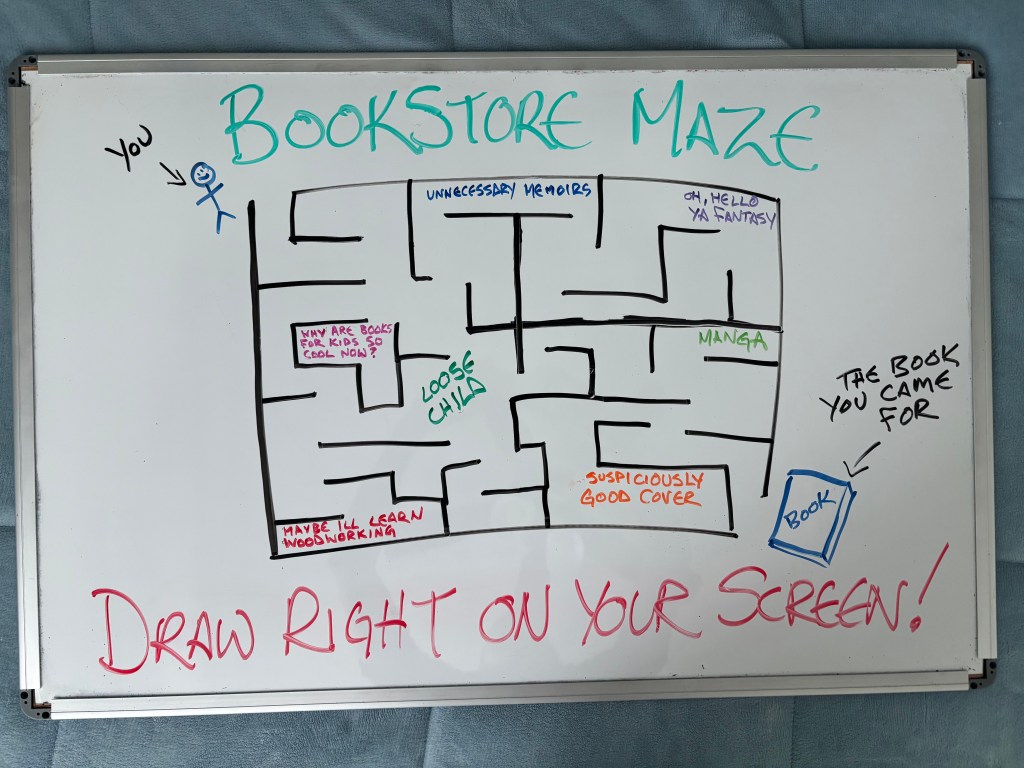 BOOKSTORE MAZE
YOU
UNNECESSARY MEMOIRS
OH, HELLO
YA FANTASY
WHY ARE BOOKS
FOR KIDS SO
COOL NOW?
MANGA
LOOSE
CHILD
THE BOOK
YOU CAME
FOR
SUSPICIOUSLY
GOOD COVER
BOOK
MAYBE ILL LEARN
WOODWORKING
DRAW RIGHT ON YOUR SCREEN!